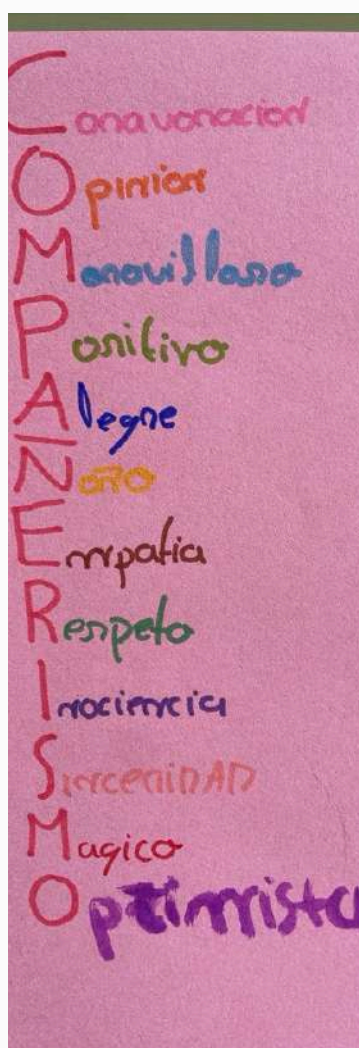 Conavonacion
Opinion
Maravilloso
Positivo
Alegre
Ñoño
Empatia
Respeto
Inociencia
SinceridAD
Magico
Optimista